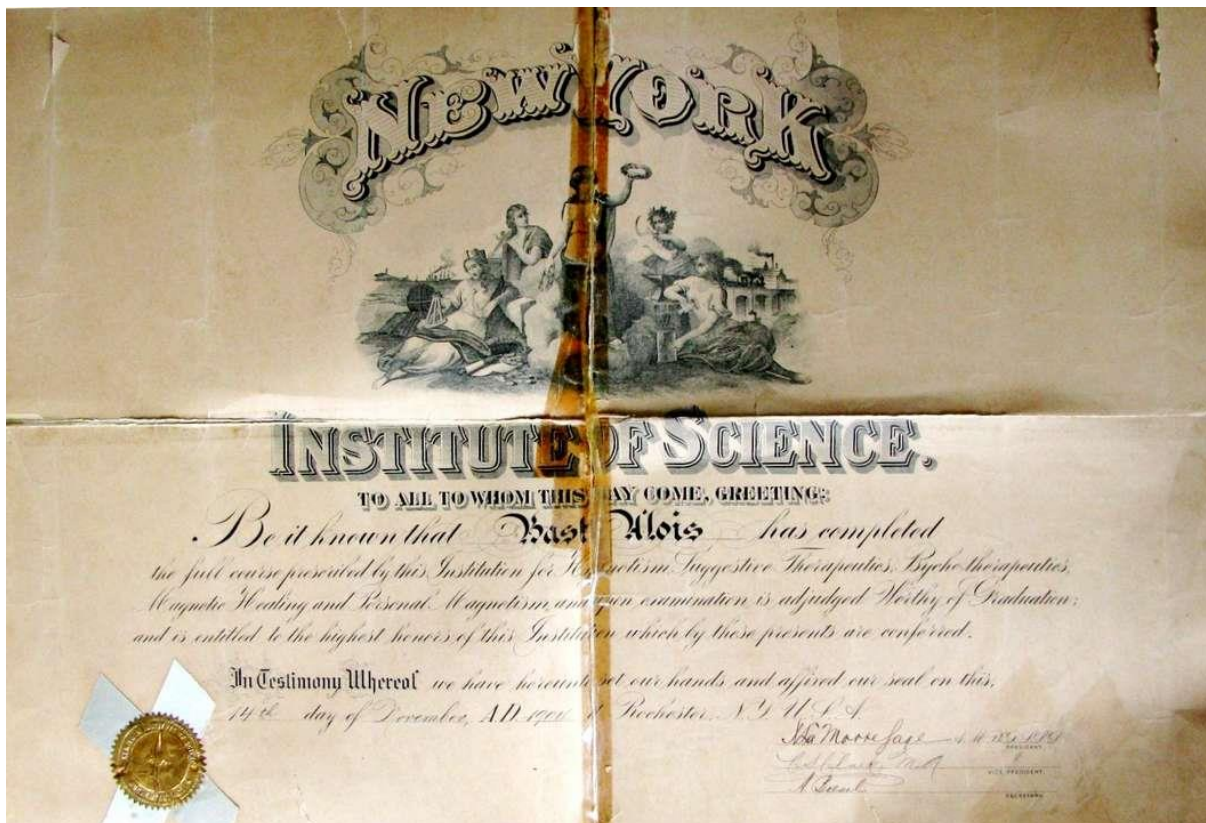 NEW YORK
INSTITUTE OF SCIENCE.
TO ALL TO WHOM THIS MAY COME, GREETING:
Be it known that Bast Alois has completed
the full course prescribed by this Institution for Hypnotism, Suggestive Therapeutics, Psycho-therapeutics,
Magnetic Healing and Personal Magnetism, and upon examination is adjudged Worthy of Graduation;
and is entitled to the highest honors of this Institution which by these presents are conferred.
In Testimony Whereof we have hereunto set our hands and affixed our seal on this,
14th day of November, A.D. at Rochester, N.Y. U.S.A.
PRESIDENT
VICE PRESIDENT
SECRETARY